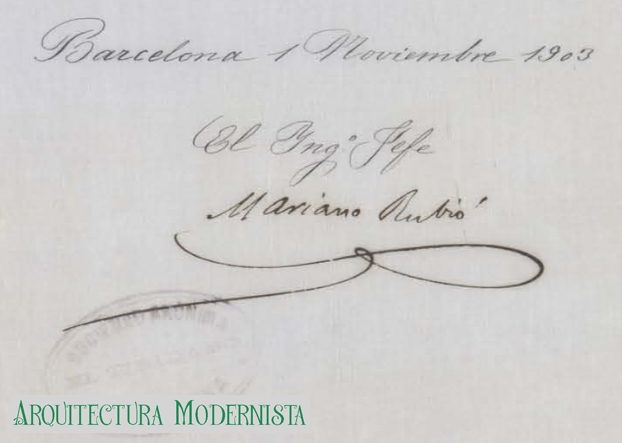 Barcelona 1 Noviembre 1903
El Yng.º Jefe
Mariano Rubió
SOCIEDAD ANÓNIMA
ARQUITECTURA MODERNISTA